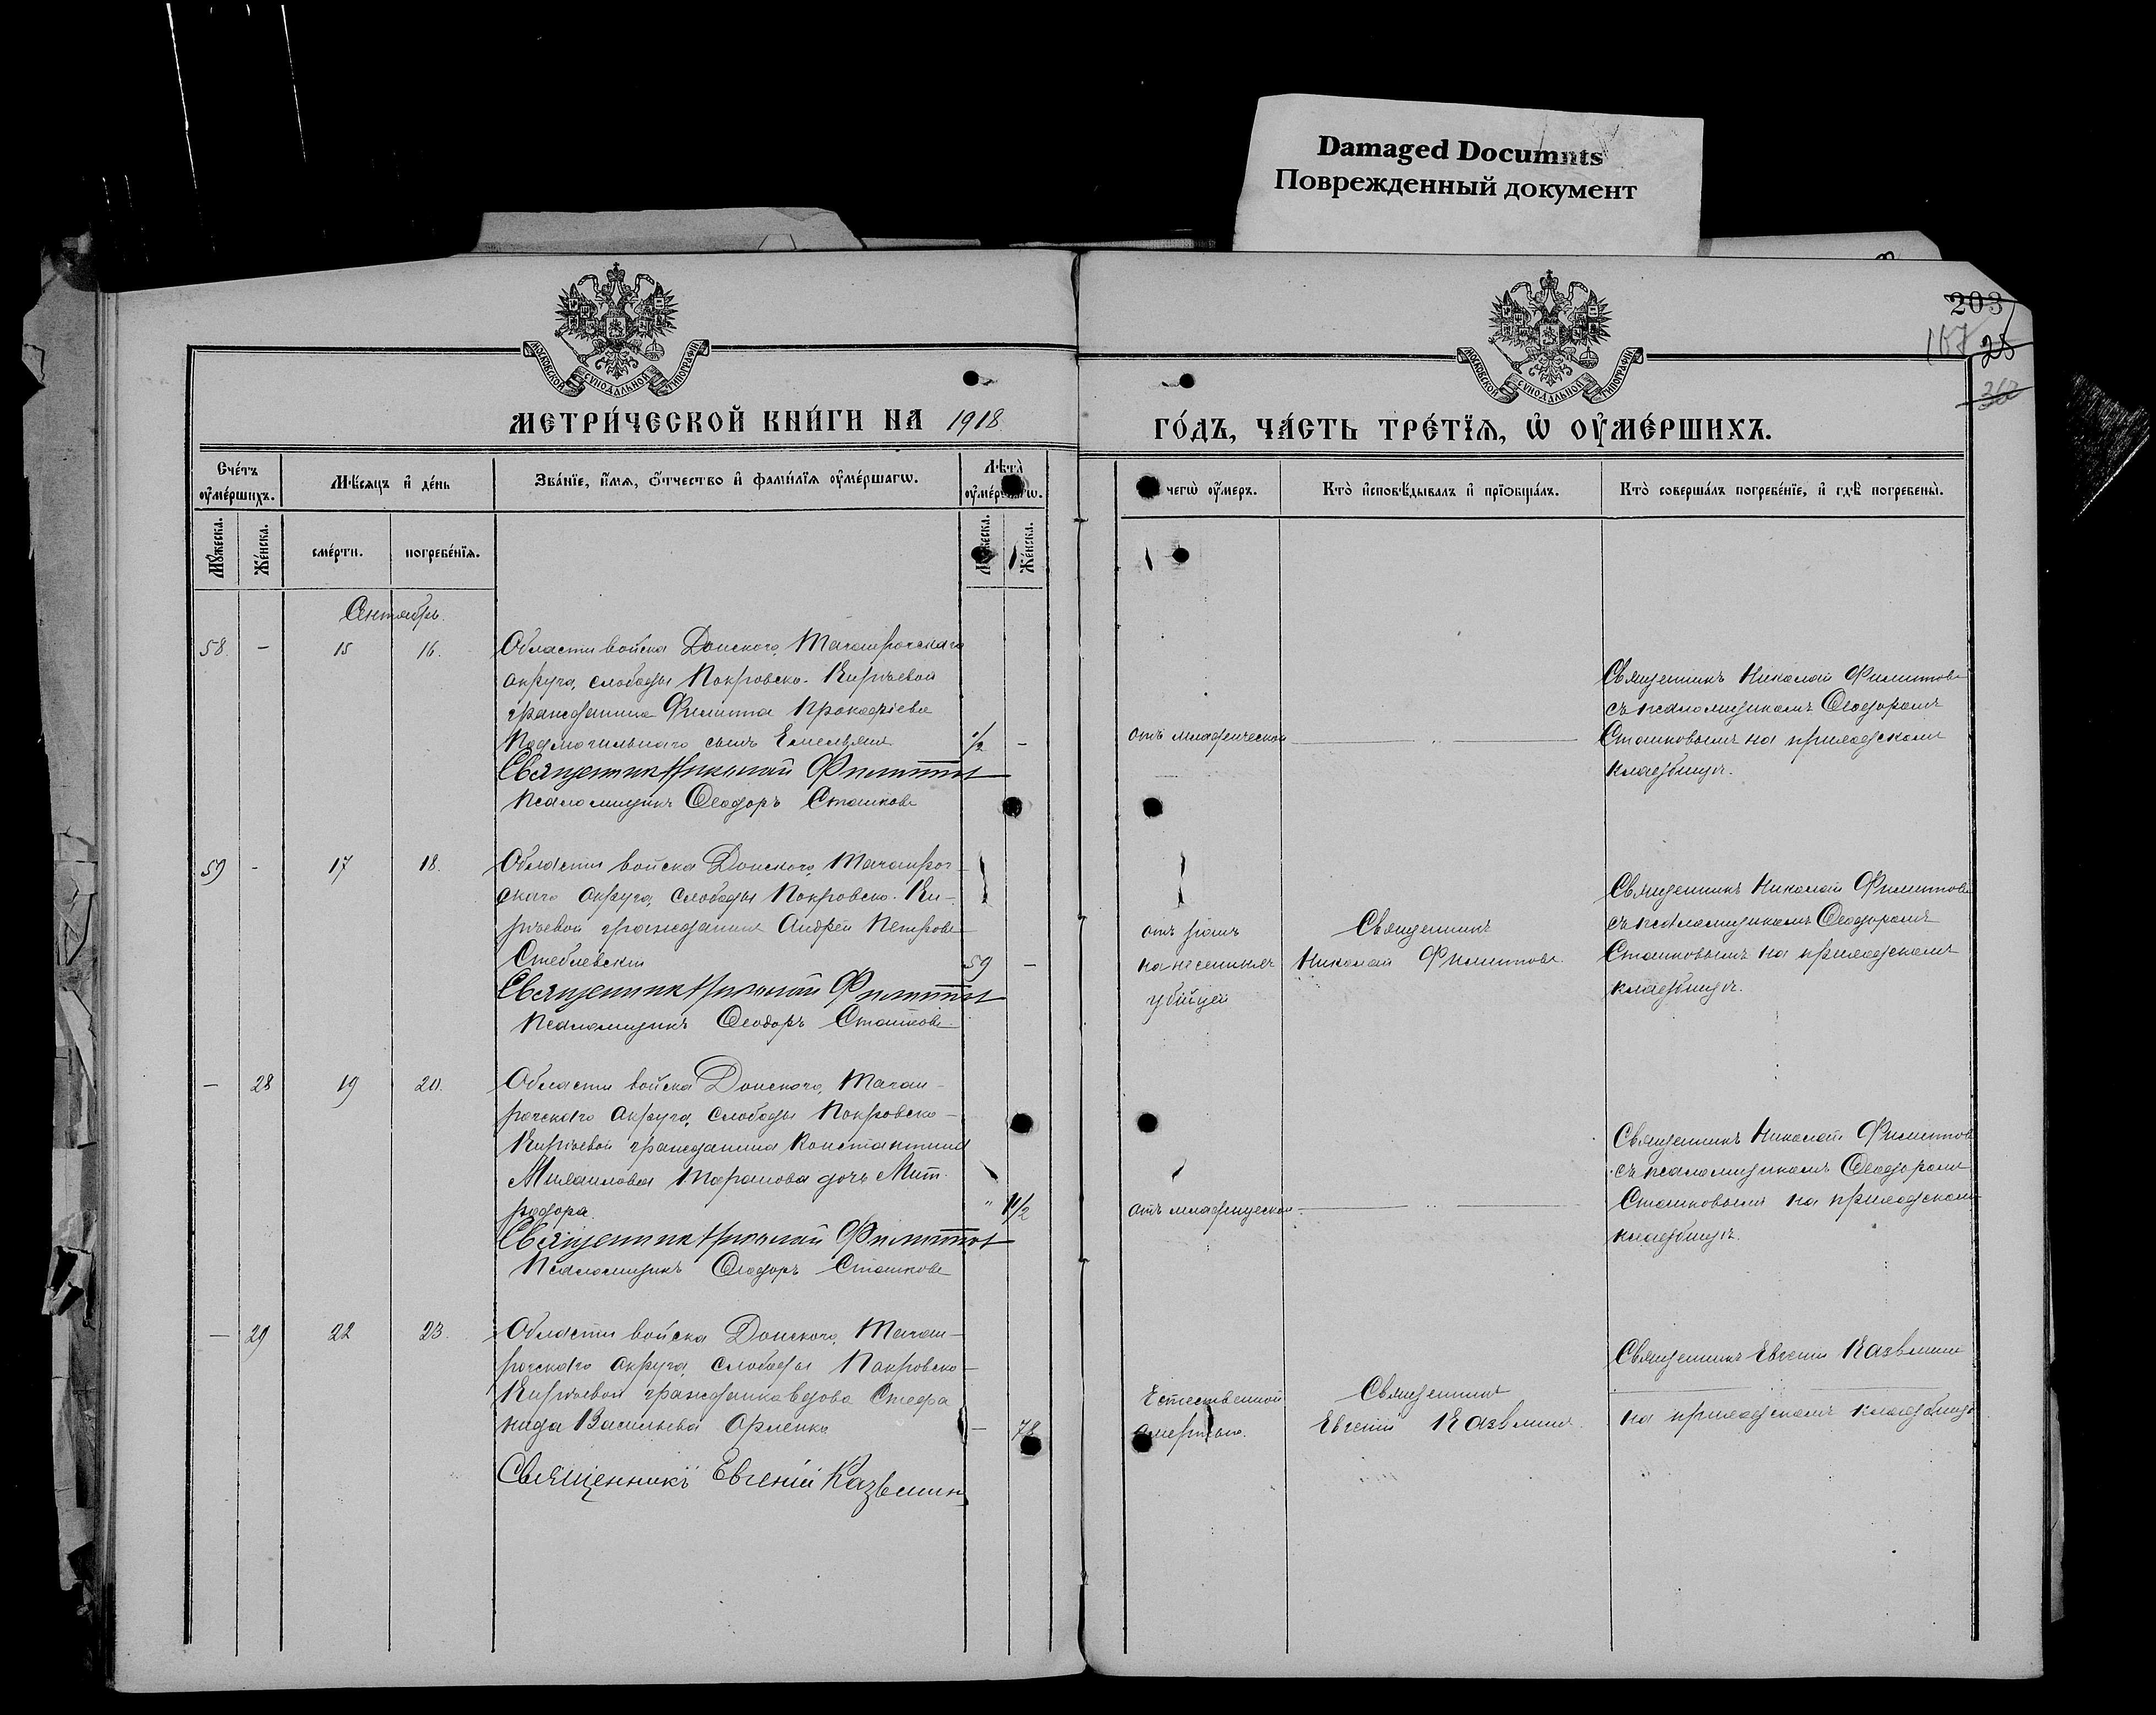 Damaged Documnts
Поврежденный документ
203
167 25
362
МОСКОВСКОЙ СѴНОДАЛЬНОЙ ТИПОГРАФІИ
МОСКОВСКОЙ СѴНОДАЛЬНОЙ ТИПОГРАФІИ
МЕТРИ́ЧЕСКОЙ КНИ́ГИ НА 1918
ГО́ДЪ, ЧА́СТЬ ТРЕ́ТЇѦ, Ѡ҆ ОУ҆МЕ́РШИХЪ.
Сче́тъ оу҆ме́ршихъ.
Мѣ́сяцъ и҆ де́нь
Зва́нїе, и҆́мѧ, ѻ҆́тчество и҆ фами́лїѧ оу҆ме́ршагѡ.
Лѣ́та̀
чегѡ̀ оу҆́меръ.
Кто̀ и҆сповѣ́дывалъ и҆ прїѡбща́лъ.
Кто̀ соверша́лъ погребе́нїе, и҆ гдѣ̀ погребены̀.
Мꙋ́жеска.
Же́нска.
сме́рти.
погребе́нїѧ.
Же́нска.
Сентябрь.
58. - 15 16.
Области войска Донского, Таганрогскаго
округа, слободы Покровско-Кирѣевой
гражданина Филиппа Прокофіева
Подмогильнаго сынъ Емельянъ 1/2 -
Священник Николай Филиппов
Псаломщикъ Ѳеодоръ Сташковъ
отъ младенческой
Священникъ Николай Филипповъ
съ псаломщикомъ Ѳеодоромъ
Сташковымъ на приходскомъ
кладбищѣ.
59 - 17 18.
Области войска Донского, Таганрог-
скаго округа, слободы Покровско-Ки-
рѣевой гражданинъ Андрей Петровъ
Стеблевскій 59 -
Священник Николай Филиппов
Псаломщикъ Ѳеодоръ Сташковъ
отъ ранъ
нанесенныхъ
убійцей
Священникъ
Николай Филипповъ
Священникъ Николай Филипповъ
съ псаломщикомъ Ѳеодоромъ
Сташковымъ на приходскомъ
кладбищѣ.
- 28 19 20.
Области войска Донского, Таган-
рогскаго округа, слободы Покровско-
Кирѣевой гражданина Константина
Михаилова Таранова дочь Мит-
родора.
Священник Николай Филиппов
Псаломщикъ Ѳеодоръ Сташковъ
отъ младенческой
Священникъ Николай Филипповъ
съ псаломщикомъ Ѳеодоромъ
Сташковымъ на приходскомъ
кладбищѣ.
- 29 22 23.
Области войска Донского, Таган-
рогскаго округа, слободы Покровско-
Кирѣевой гражданка вдова Стефа
нида Васильева - 78
Священникъ Евгеній
Естественной
смертью.
Священникъ
Евгеній
Священникъ Евгеній
на приходскомъ кладбищѣ